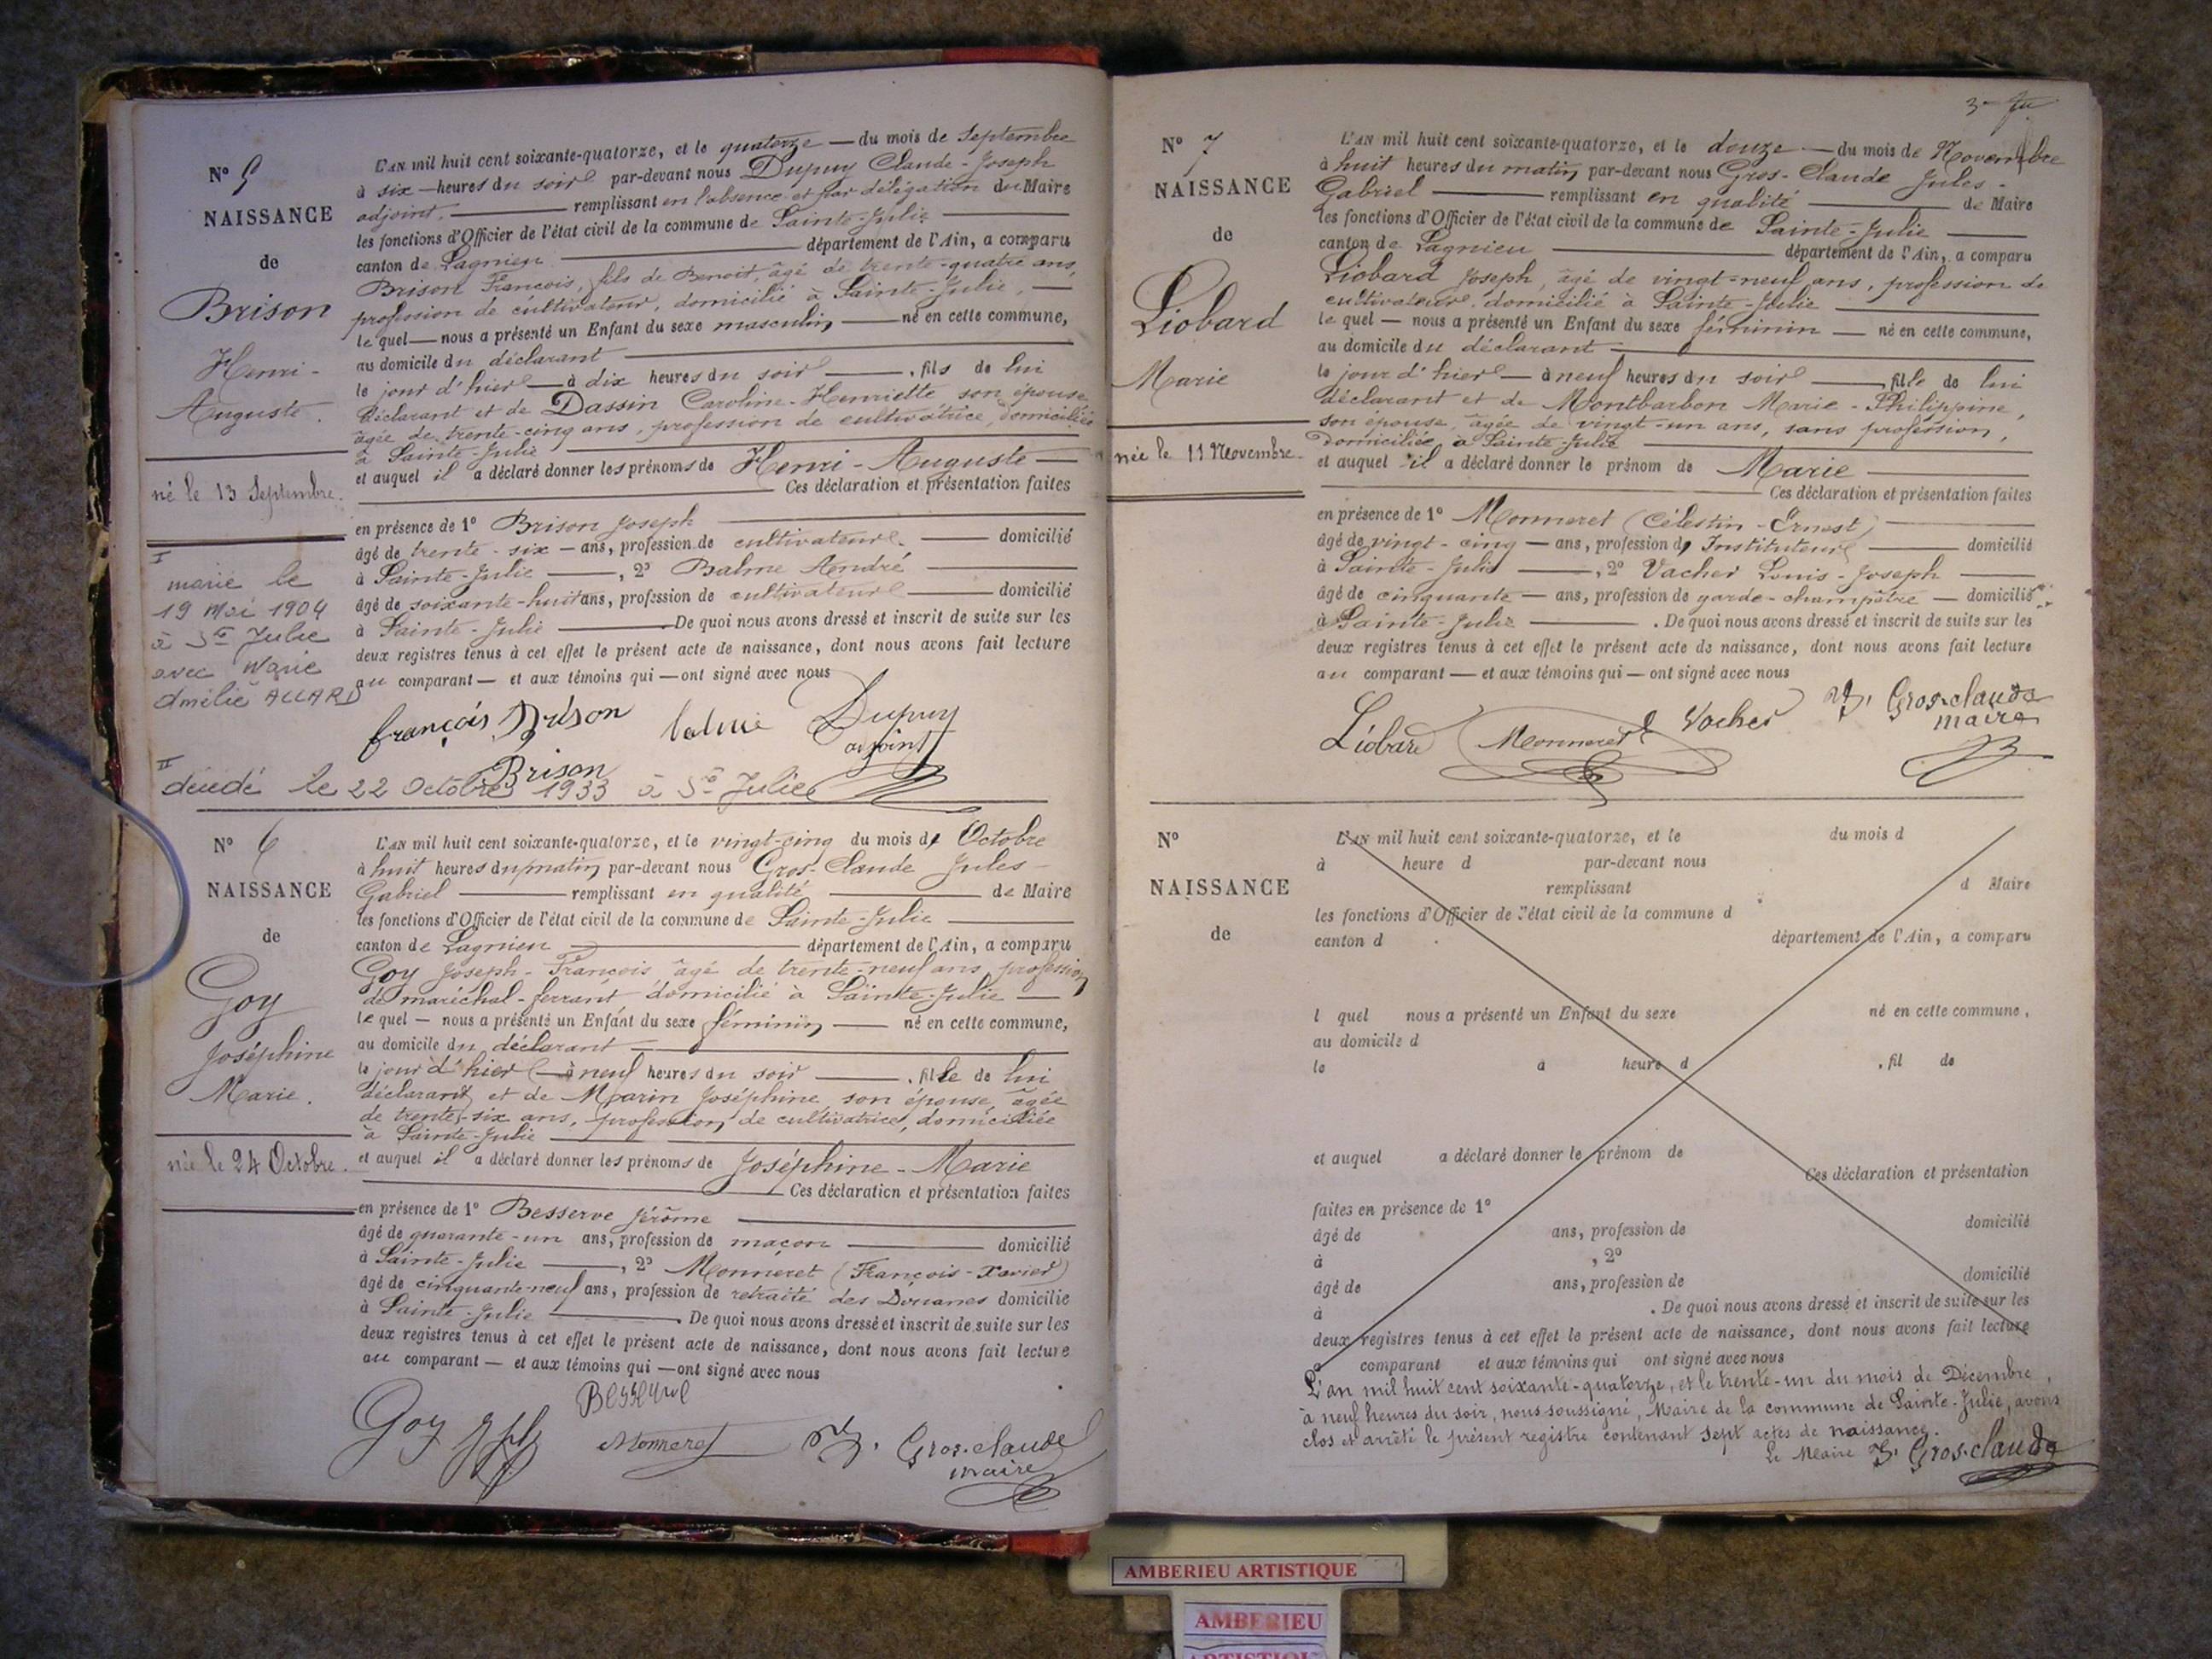 N° 5
NAISSANCE
de
Brison
Henri-
Auguste.
né le 13 Septembre.
I
marié le
19 Mai 1904
à Ste Julie
avec Marie
Amélie ALLARD
II
décédé le 22 Octobre 1933 à Ste Julie
L'AN mil huit cent soixante-quatorze, et le quatorze — du mois de Septembre
à six — heures du soir par-devant nous Dupuy Claude-Joseph
adjoint, — remplissant en l'absence et par délégation du Maire
les fonctions d'Officier de l'état civil de la commune de Sainte-Julie —
canton de Lagnieu — département de l'Ain, a comparu
Brison François, fils de Benoit, âgé de trente-quatre ans,
profession de cultivateur, domicilié à Sainte-Julie, —
lequel — nous a présenté un Enfant du sexe masculin — né en cette commune,
au domicile du déclarant —
le jour d'hier — à dix heures du soir —, fils de lui
déclarant et de Dassin Caroline-Henriette son épouse
âgée de trente-cinq ans, profession de cultivatrice, domiciliée
à Sainte-Julie —
et auquel il a déclaré donner les prénoms de Henri-Auguste —
— Ces déclaration et présentation faites
en présence de 1° Brison Joseph —
âgé de trente-six — ans, profession de cultivateur — domicilié
à Sainte-Julie —, 2° Balme André —
âgé de soixante-huit ans, profession de cultivateur — domicilié
à Sainte-Julie — De quoi nous avons dressé et inscrit de suite sur les
deux registres tenus à cet effet le présent acte de naissance, dont nous avons fait lecture
au comparant — et aux témoins qui — ont signé avec nous
françois Brison balme Dupuy
adjoint
Brison
N° 6
NAISSANCE
de
Goy
Joséphine
Marie.
née le 24 Octobre.
L'AN mil huit cent soixante-quatorze, et le vingt-cinq du mois de Octobre
à huit heures du matin par-devant nous Gros-Claude Jules-
Gabriel — remplissant en qualité — de Maire
les fonctions d'Officier de l'état civil de la commune de Sainte-Julie —
canton de Lagnieu — département de l'Ain, a comparu
Goy Joseph-François âgé de trente-neuf ans, profession
de maréchal-ferrant domicilié à Sainte-Julie —
lequel — nous a présenté un Enfant du sexe féminin — né en cette commune,
au domicile du déclarant —
le jour d'hier — à neuf heures du soir —, fille de lui
déclarant et de Marin Joséphine son épouse, âgée
de trente-six ans, profession de cultivatrice, domiciliée
à Sainte-Julie —
et auquel il a déclaré donner les prénoms de Joséphine-Marie
— Ces déclaration et présentation faites
en présence de 1° Besserve Jérôme —
âgé de quarante-un ans, profession de maçon — domicilié
à Sainte-Julie —, 2° Monneret (François-Xavier)
âgé de cinquante-neuf ans, profession de retraité des Douanes domicilié
à Sainte-Julie — . De quoi nous avons dressé et inscrit de suite sur les
deux registres tenus à cet effet le présent acte de naissance, dont nous avons fait lecture
au comparant — et aux témoins qui — ont signé avec nous
Besserve
Goy Monneret Gros-claude
maire
N° 7
NAISSANCE
de
Liobard
Marie
née le 11 Novembre.
L'AN mil huit cent soixante-quatorze, et le douze — du mois de Novembre
à huit heures du matin par-devant nous Gros-Claude Jules-
Gabriel — remplissant en qualité — de Maire
les fonctions d'Officier de l'état civil de la commune de Sainte-Julie —
canton de Lagnieu — département de l'Ain, a comparu
Liobard Joseph, âgé de vingt-neuf ans, profession de
cultivateur, domicilié à Sainte-Julie —
lequel — nous a présenté un Enfant du sexe féminin — né en cette commune,
au domicile du déclarant —
le jour d'hier — à neuf heures du soir —, fille de lui
déclarant et de Montbarbon Marie-Philippine,
son épouse, âgée de vingt-un ans, sans profession,
domiciliée à Sainte-Julie —
et auquel il a déclaré donner le prénom de Marie —
— Ces déclaration et présentation faites
en présence de 1° Monneret (Célestin-Ernest) —
âgé de vingt-cinq — ans, profession d'Instituteur — domicilié
à Sainte-Julie —, 2° Vacher Louis-Joseph —
âgé de cinquante — ans, profession de garde-champêtre — domicilié
à Sainte-Julie — . De quoi nous avons dressé et inscrit de suite sur les
deux registres tenus à cet effet le présent acte de naissance, dont nous avons fait lecture
au comparant — et aux témoins qui — ont signé avec nous
Liobard Monneret Vacher Gros-claude
maire
N°
NAISSANCE
de
L'AN mil huit cent soixante-quatorze, et le du mois d
à heure d par-devant nous
remplissant d Maire
les fonctions d'Officier de l'état civil de la commune d
canton d département de l'Ain, a comparu
l quel nous a présenté un Enfant du sexe né en cette commune,
au domicile d
le a heure d , fil de
et auquel a déclaré donner le prénom de
Ces déclaration et présentation
faites en présence de 1°
âgé de ans, profession de domicilié
à , 2°
âgé de ans, profession de domicilié
à . De quoi nous avons dressé et inscrit de suite sur les
deux registres tenus à cet effet le présent acte de naissance, dont nous avons fait lecture
comparant et aux témoins qui ont signé avec nous
L'an mil huit cent soixante-quatorze, et le trente-un du mois de Décembre,
à neuf heures du soir, nous soussigné, Maire de la commune de Sainte-Julie, avons
clos et arrêté le présent registre contenant sept actes de naissance.
Le Maire J. Gros-claude
AMBERIEU ARTISTIQUE
AMBERIEU
ARTISTIQUE